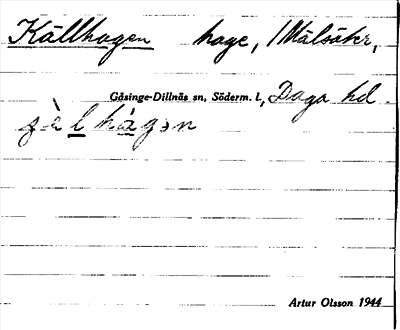 Källhagen hage, Målsåkr,
Gåsinge-Dillnäs sn, Söderm. l., Daga hd.
Artur Olsson 1944